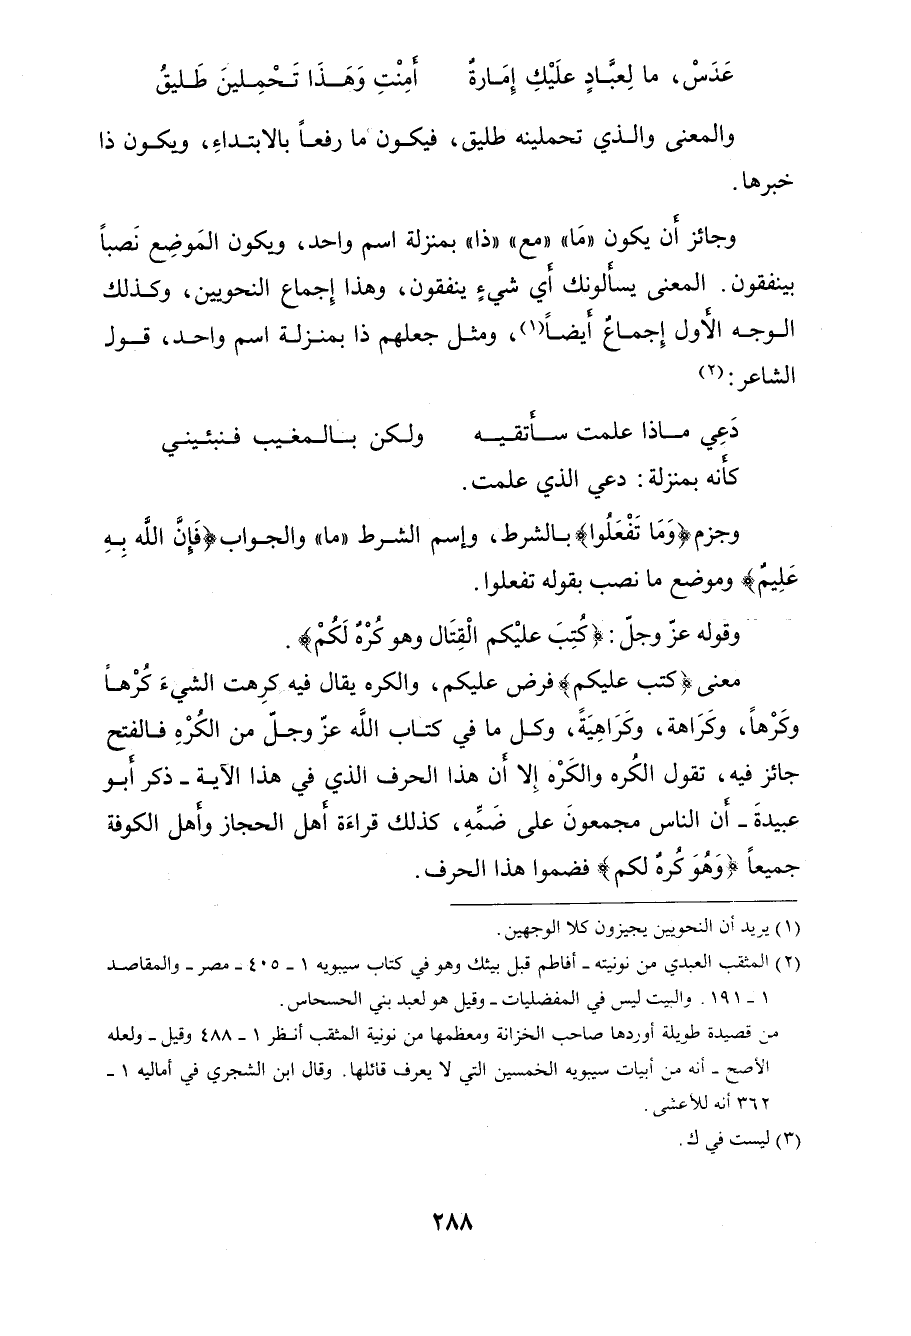 عَدَسْ، ما لِعبَّادٍ علَيْكِ إِمَارةٌ    أَمِنْتِ وَهَـذَا تَـحْمِلينَ طَلِيقُ
والمعنى والـذي تحملينه طليق، فيكـون ما رفعـاً بالابتـداءِ، ويكـون ذا
خبرها.
وجائز أن يكون «مَا» «مع» «ذا» بمنزلة اسم واحد، ويكون المَوضِع نَصباً
بينفقون. المعنى يسألونك أي شيءٍ ينفقون، وهذا إجماع النحويين، وكـذلك
الـوجـه الأول إجمـاعٌ أيضـاً(١)، ومثـل جعلهم ذا بمنـزلـة اسم واحـد، قـول
الشاعر:(٢)
دَعِي مـاذا علمت سـأتقيـه    ولـكن بـالـمغيـب فـنبئيـني
كأنه بمنزلة: دعي الذي علمت.
وجزم ﴿وَمَا تَفْعَلُوا﴾ بـالشرط، وإسم الشـرط «ما» والجـواب ﴿فَإِنَّ اللَّه بِـهِ
عَلِيمٌ﴾ وموضع ما نصب بقوله تفعلوا.
وقوله عزّ وجلّ: ﴿كُتِبَ عليْكم الْقِتَال وهو كُرْهٌ لَكُمْ﴾.
معنى ﴿كتب عليكم﴾ فرض عليكم، والكره يقال فيه كرِهت الشيءَ كُرْهـاً
وكَرْهاً، وكَرَاهة، وكَرَاهِيَةً، وكـل ما في كتـاب اللَّه عزّ وجـلّ من الكُرْهِ فـالفتح
جائز فيه، تقول الكُره والكَرْه إلا أن هذا الحرف الذي في هذا الآية ـ ذكر أبـو
عبيدةَ ـ أن الناس مجمعونَ على ضَمِّهِ، كذلك قراءَة أهل الحجاز وأهل الكوفة
جميعاً ﴿وَهُوَ كُرهٌ لكم﴾ فضموا هذا الحرف.
(١) يريد أن النحويين يجيزون كلا الوجهين.
(٢) المثقب العبدي من نونيته ـ أفاطم قبل بينك وهو في كتاب سيبويه ١ ـ ٤٠٥ ـ مصر ـ والمقاصـد
١ ـ ١٩١. والبيت ليس في المفضليات ـ وقيل هو لعبد بني الحسحاس.
من قصيدة طويلة أوردها صاحب الخزانة ومعظمها من نونية المثقب أنـظر ١ ـ ٤٨٨ وقيل ـ ولعله
الأصح ـ أنه من أبيات سيبويه الخمسين التي لا يعرف قائلها. وقال ابن الشجري في أماليه ١ ـ
٣٦٢ أنه للأعشى.
(٣) ليست في ك.
٢٨٨